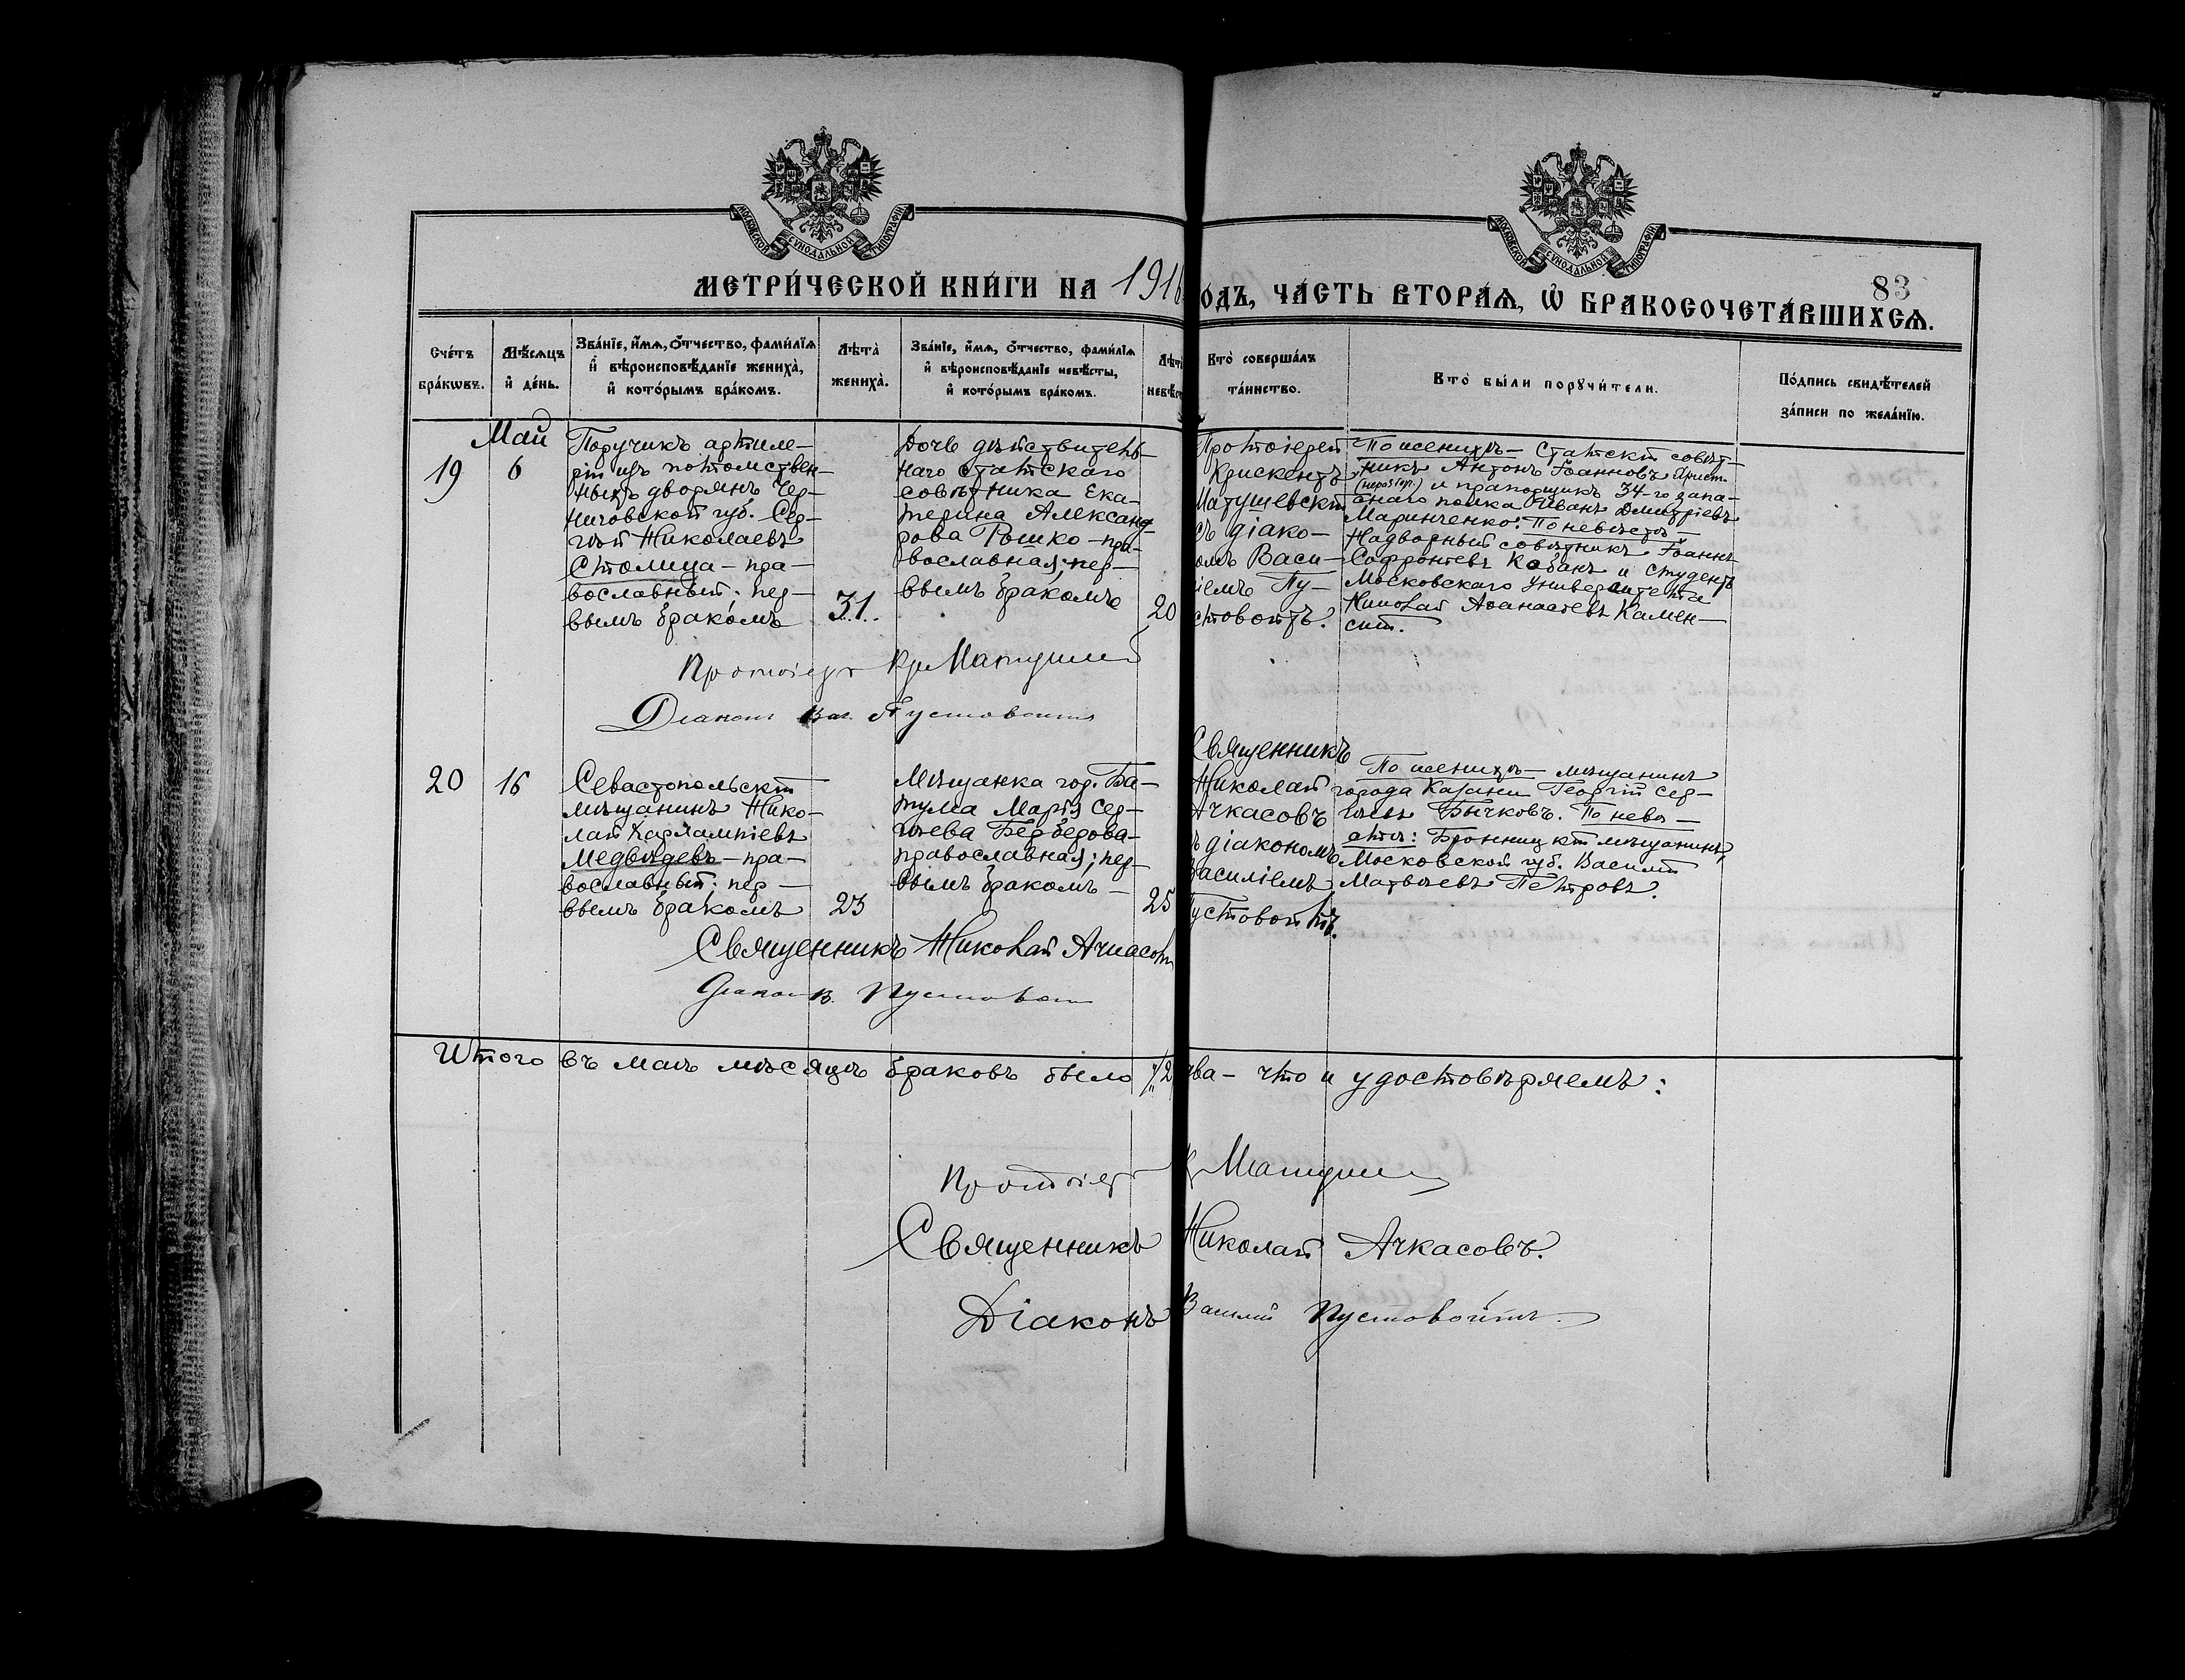 МОСКОВСКОЙ СѴНОДАЛЬНОЙ ТИПОГРАФІИ
МОСКОВСКОЙ СѴНОДАЛЬНОЙ ТИПОГРАФІИ
83
МЕТРИ́ЧЕСКОЙ КНИ́ГИ НА 1916 ОДЪ, ЧА́СТЬ ВТОРА́Ѧ, Ѡ БРАКОСОЧЕТА́ВШИХСѦ.
Сче́тъ бра́кѡвъ.
Мѣ́сѧцъ и҆ де́нь.
Зва́нїе, и҆́мѧ, ѻ҆́тчество, фами́лїѧ и҆ вѣроисповѣ́данїе жениха̀, и҆ кото́рымъ бра́комъ.
Лѣта̀ жениха̀.
Зва́нїе, и҆́мѧ, ѻ҆́тчество, фами́лїѧ и҆ вѣроисповѣ́данїе невѣ́сты, и҆ кото́рымъ бра́комъ.
Лѣт невѣст
Кто̀ соверша́лъ та́инство.
Кто̀ бы́ли порꙋчи́тели.
По́дпись свидѣ́телей за́писи по жела́нїю.
Май
19
6
Поручикъ артиле-
ріи изъ потомствен-
ныхъ дворянъ Чер-
ниговской губ. Сер-
гѣй Николаевъ
Столица - пра-
вославный; пер-
вымъ бракомъ
31.
Дочь дѣйствитель-
наго статскаго
совѣтника Ека-
терина Александ-
рова Рошко - пра-
вославная; пер-
вымъ бракомъ
20
Протоіерей
Крискентъ
Матушевскій
съ діако-
омъ Васи-
іемъ Пу-
стовойтъ.
По женихѣ - Статскій совѣт-
никъ Антонъ Іоанновъ
и прапорщикъ 34-го запа-
снаго полка Иванъ Дмитріевъ
Маринченко: По невѣстѣ
Надворный совѣтникъ Іоаннъ
Софроніевъ Кабанъ и студентъ
Московскаго Университета
Николай Аѳанасіевъ Камен-
скій.
Протоіерей Кр Матушев
Діаконъ Вас. Пустовойтъ
20
16
Севастопольскій
мѣщанинъ Нико-
лай Харлампіевъ
Медвѣдевъ - пра-
вославный; пер-
вымъ бракомъ
23
Мѣщанка гор. Ба-
тума Марія Сер-
гѣева Берберова -
православная; пер-
вымъ бракомъ -
25
Священникъ
Николай
Ачкасовъ
ъ діакономъ
Василіемъ
Пустовойтъ.
По женихѣ - мѣщанинъ
города Казани Георгій Сер-
гѣевъ Бычковъ. По невѣ-
стѣ: Бронницкій мѣщанинъ,
Московской губ. Василій
Матвѣевъ Петровъ.
Священникъ Николай Ачкасовъ
Діаконъ В. Пустовойтъ
Итого въ маѣ мѣсяцѣ браковъ было 2 два - что и удостовѣряемъ:
Протоіерей К Матушев
Священникъ Николай Ачкасовъ.
Діаконъ Василій Пустовойтъ.